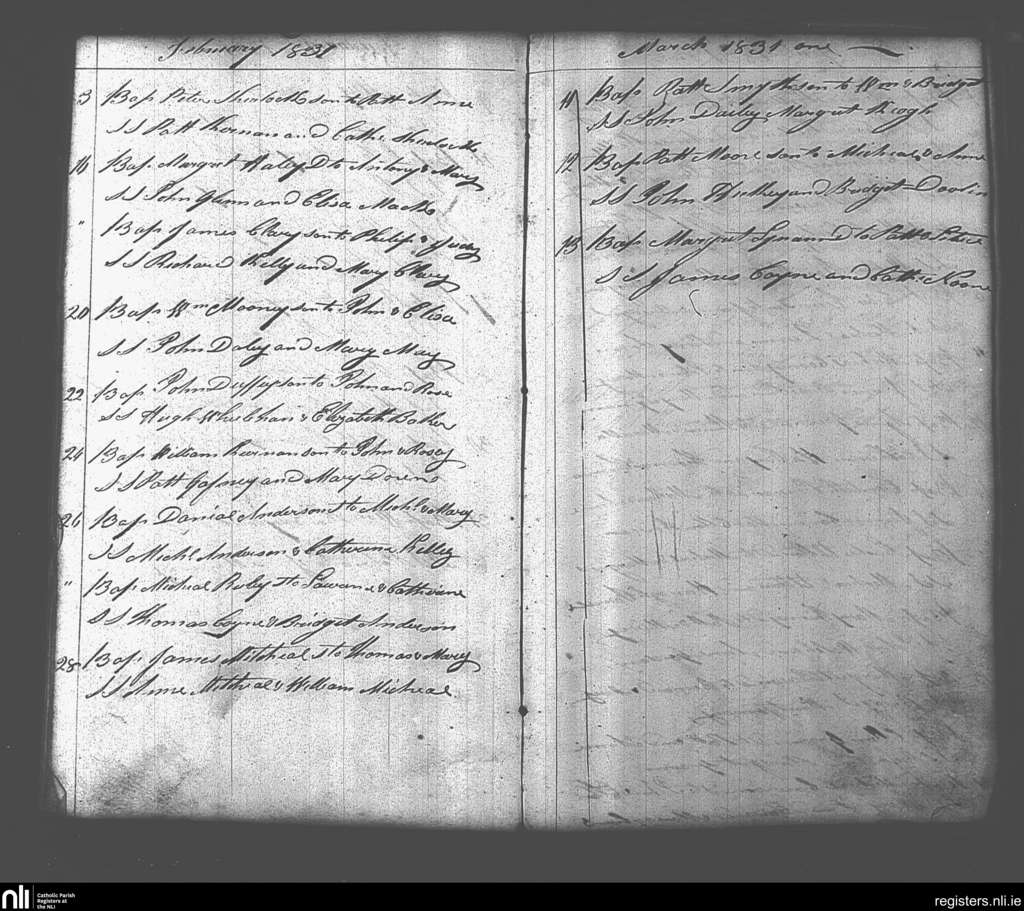 February 1831
3 Bap. Peter Sherlock son to Patt & Anne
SS Patt Kernan and Cathe. Sherlock
16 Bap. Margret Haley D to Antony & Mary
SS John Glenn and Elisa
" Bap. James Clary son to Philip & Judy
SS Richard Kelly and Mary Clary
20 Bap. Wm Mooney son to John & Elisa
SS John Daley and Mary May
22 Bap. John Duffy son to John and Rose
SS Hugh & Elizabeth
24 Bap. William Kiernan son to John & Rosey
SS Patt Gafney and Mary Downs
26 Bap. Danial Anderson S to Michl. & Mary
SS Michl. Anderson & Catherine Kelley
" Bap. Micheal S to & Catherine
SS Thomas Coyne & Bridget Anderson
28 Bap. James Mitcheal S to Thomas & Mary
SS Anne Mitcheal & William Micheal
March 1831 one
11 Bap. Patt Smyth son to Wm & Bridget
SS John Dailey Margret Keogh
12 Bap. Patt Moore son to Micheal & Anne
SS John Hickey and Bridget Doolin
13 Bap. Margret D to Patt &
SS James Coyne and Cathe. Noone
nli
Catholic Parish
Registers at
the NLI
registers.nli.ie